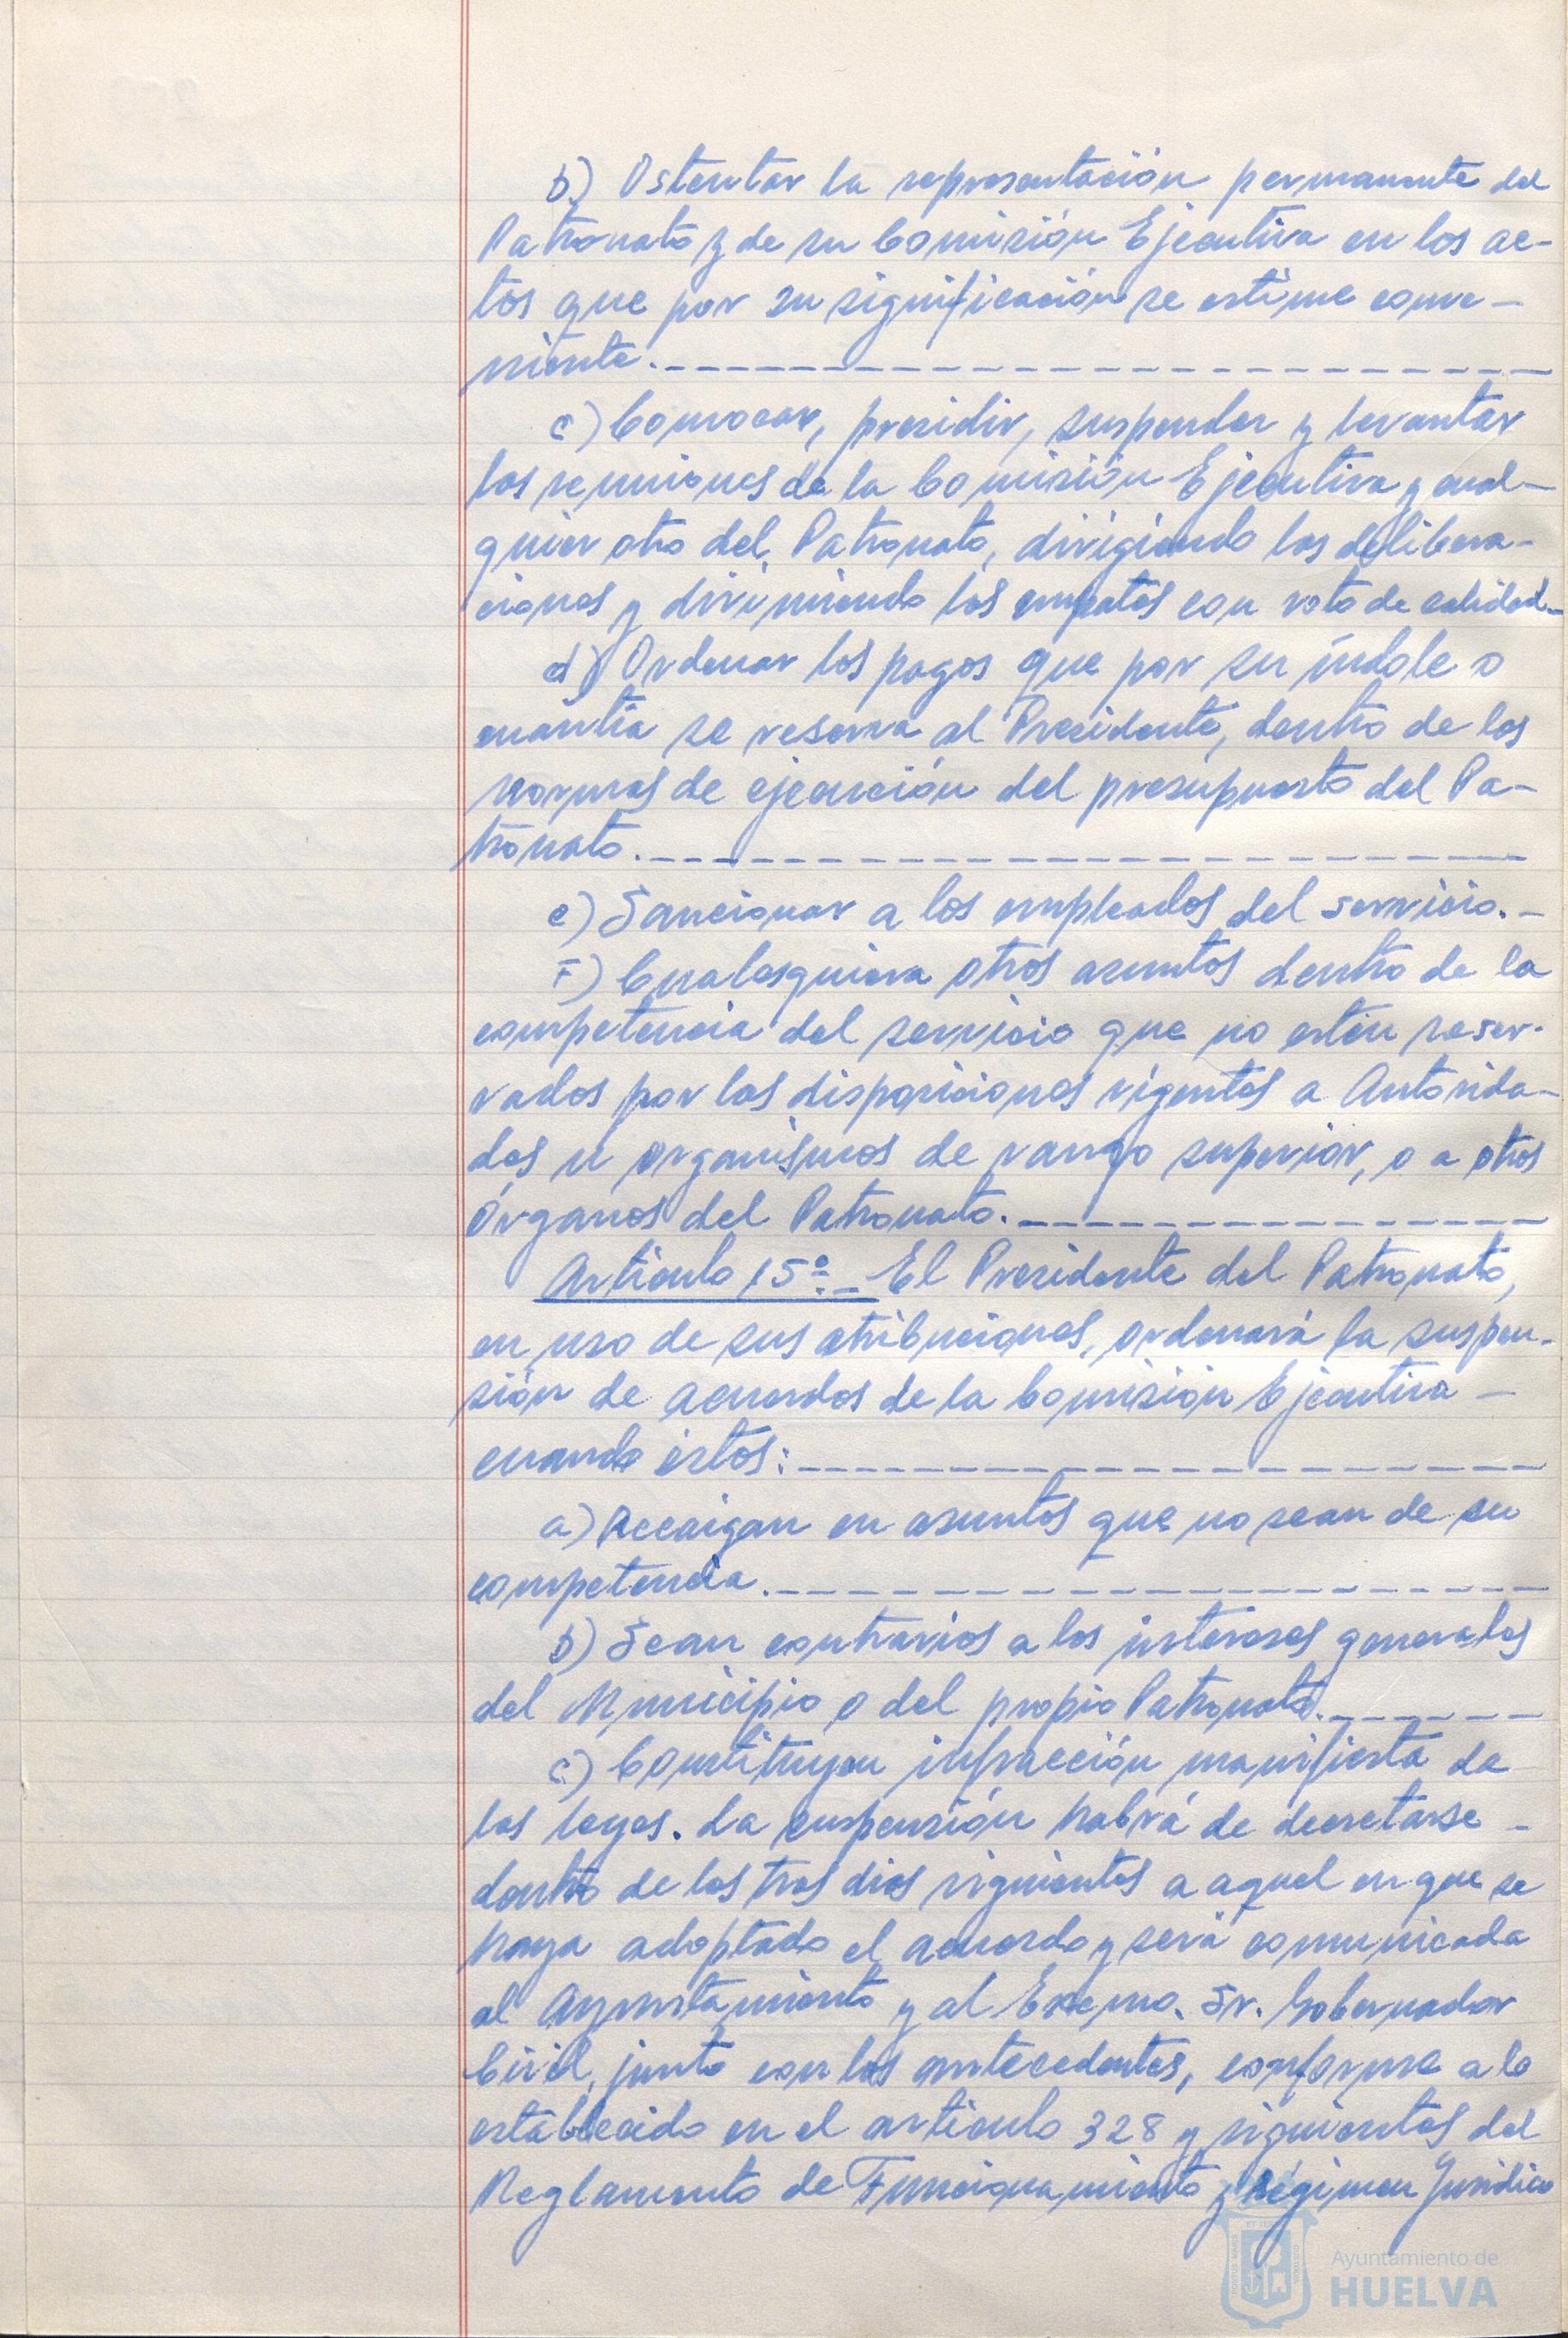 b) Ostentar la representación permanente del
Patronato y de su Comisión Ejecutiva en los ac-
tos que por su significación se estime conve-
niente.
c) Convocar, presidir, suspender y levantar
las reuniones de la Comisión Ejecutiva y cual-
quier otra del Patronato, dirigiendo las delibera-
ciones y dirimiendo los empates con voto de calidad.
d) Ordenar los pagos que por su índole o
cuantía se reserva al Presidente, dentro de las
normas de ejecución del presupuesto del Pa-
tronato.
e) Sancionar a los empleados del servicio.-
F) Cualesquiera otros asuntos dentro de la
competencia del servicio que no estén reser-
vados por las disposiciones vigentes a Autorida-
des u organismos de rango superior, o a otros
Órganos del Patronato.
Artículo 15º.- El Presidente del Patronato,
en uso de sus atribuciones, ordenará la suspen-
sión de acuerdos de la Comisión Ejecutiva -
cuando éstos:
a) Recaigan en asuntos que no sean de su
competencia.
b) Sean contrarios a los intereses generales
del Municipio o del propio Patronato.
c) Constituyan infracción manifiesta de
las leyes. La suspensión habrá de decretarse -
dentro de los tres días siguientes a aquel en que se
haya adoptado el acuerdo y será comunicada
al Ayuntamiento y al Excmo. Sr. Gobernador
Civil, junto con los antecedentes, conforme a lo
establecido en el artículo 328 y siguientes del
Reglamento de Funcionamiento y Régimen Jurídico
Ayuntamiento de
HUELVA